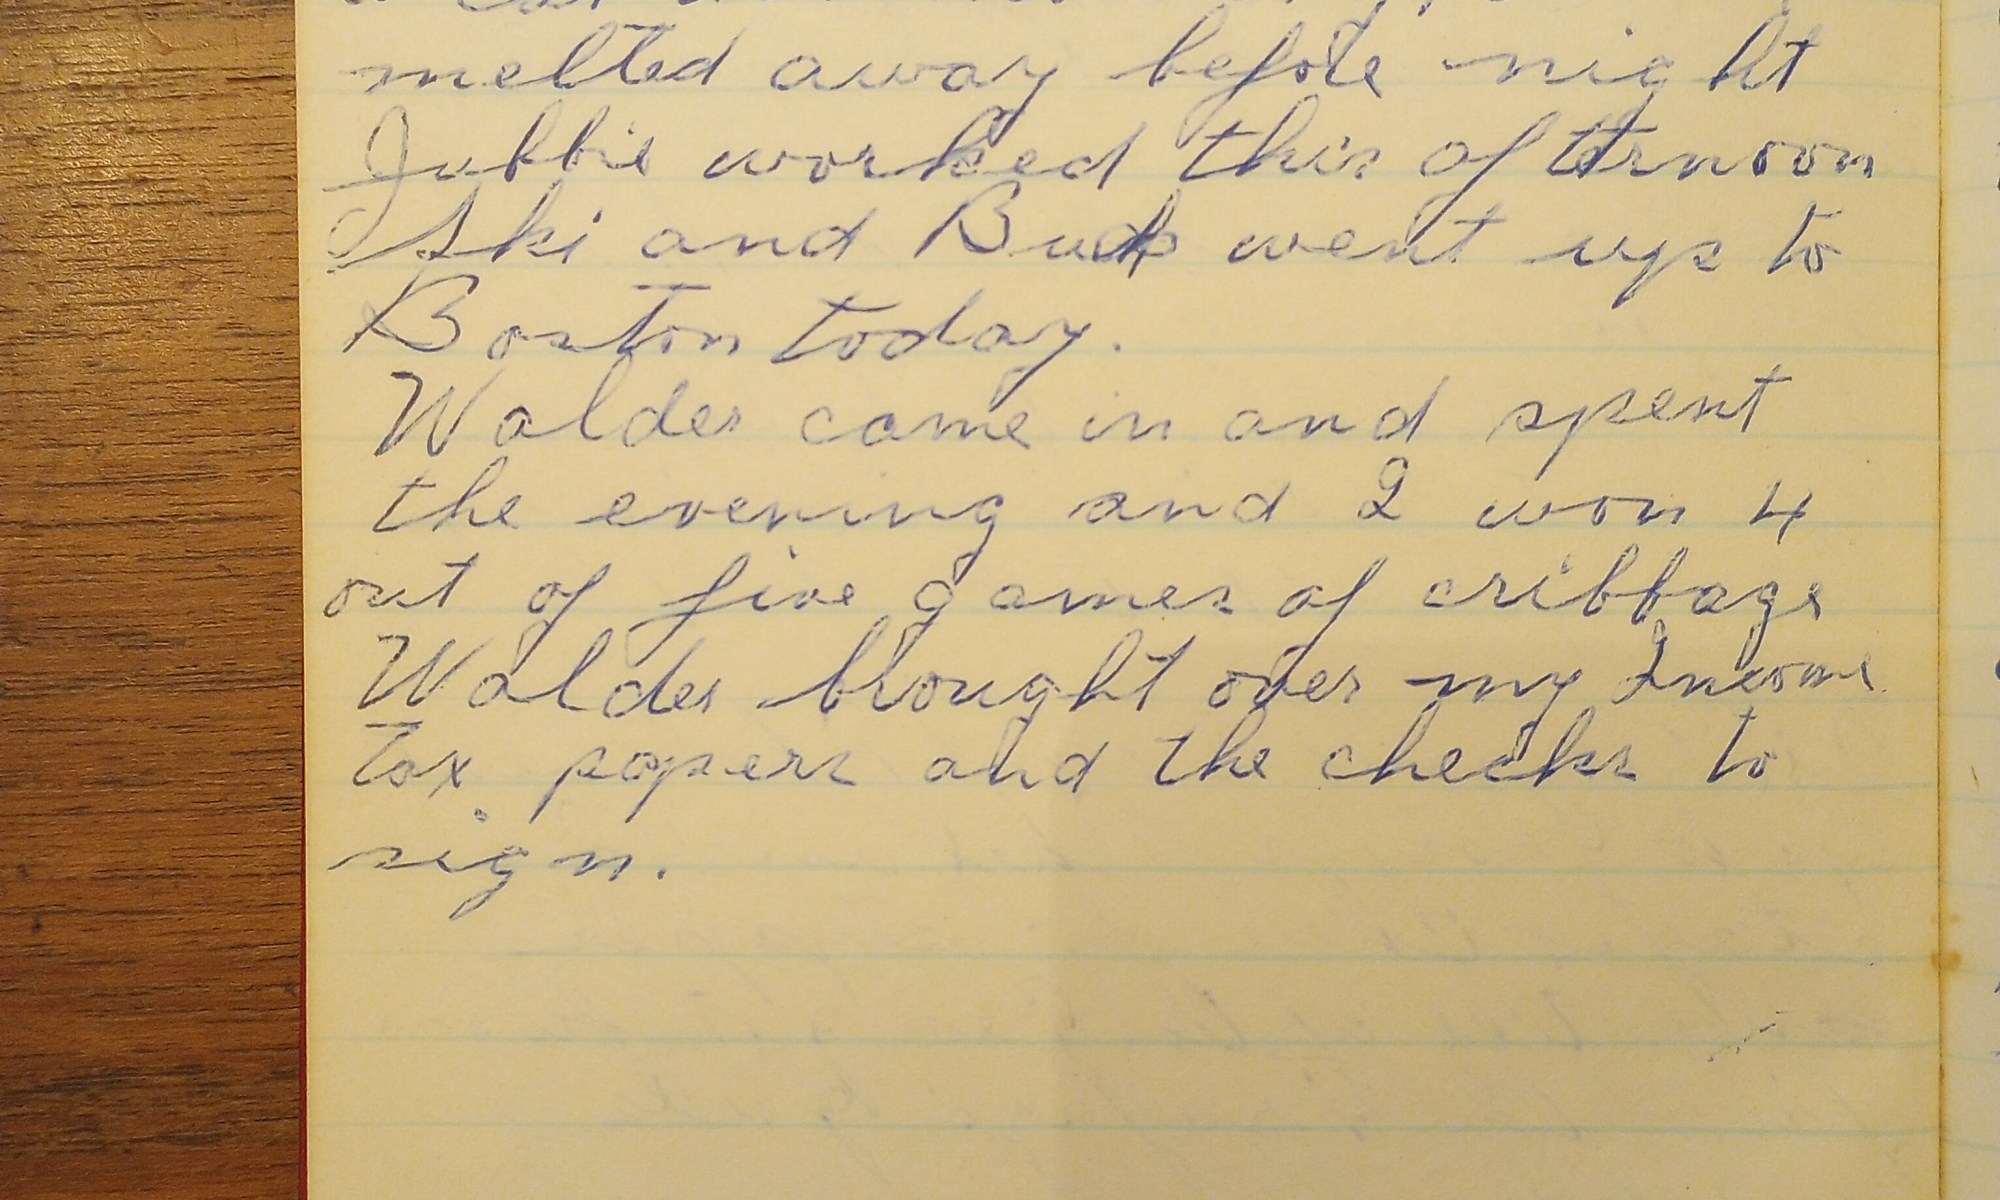 melted away before night
Jubbie worked this afternoon
Ski and Buck went up to
Boston today.
Walder came in and spent
the evening and I won 4
out of five games of cribbage
Walder brought over my Income
Tax papers and the checks to
sign.